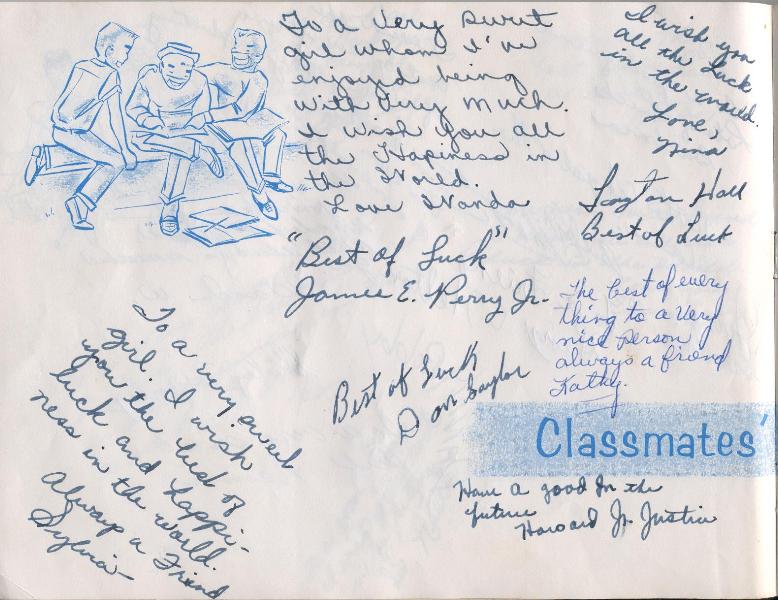 To a Very Sweet
girl whom I've
enjoyed being
with Very Much.
I Wish You all
the Hapiness in
the World.
Love Wanda
I wish you
all the luck
in the world.
Love,
Nina
Layton Hall
Best of Luck
"Best of Luck"
James E. Perry Jr.
The best of every
thing to a very
nice person
always a friend
Kathy.
Best of Luck
Don Saylor
To a very sweet
girl. I wish
you the best of
luck and happi-
ness in the world.
Always a Friend
Sylvia
Classmates'
Have a good In the
future
Howard Jr. Justin